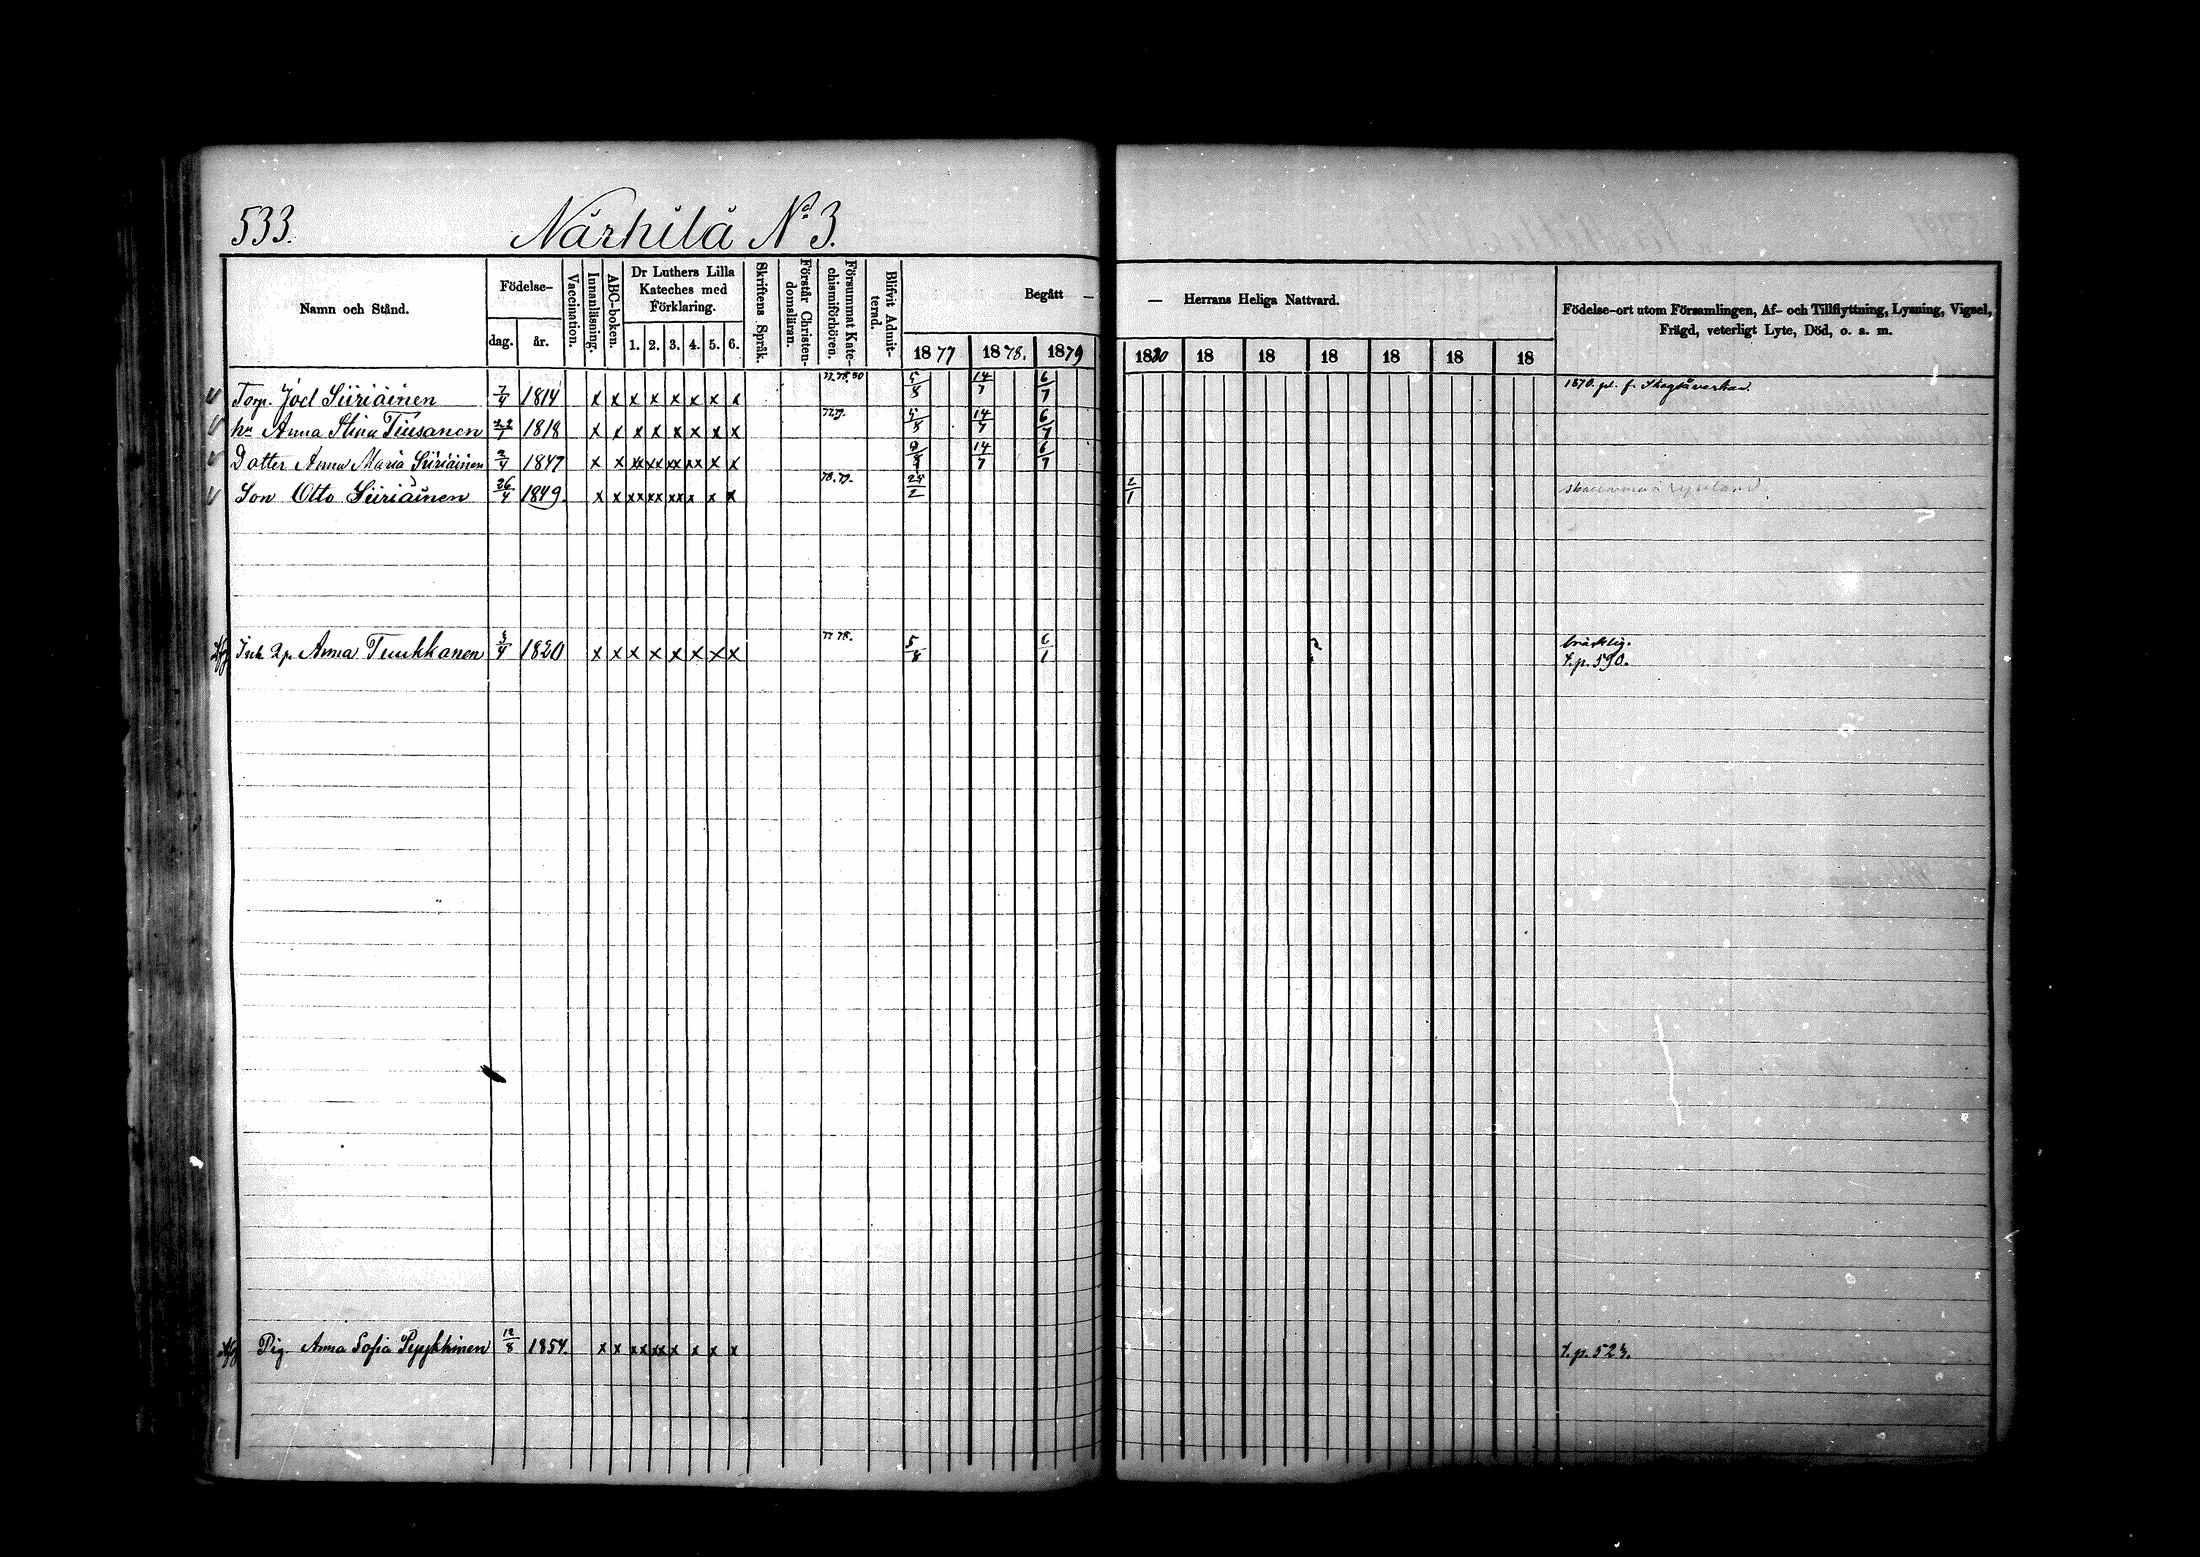 533. Närhilä No 3.
Namn och Stånd. Födelse- dag. år. Vaccination. Innanläsning. ABC-boken. Dr Luthers Lilla Kateches med Förklaring. 1. 2. 3. 4. 5. 6. Skriftens Språk. Förstår Christendomsläran. Försummat Katechismiförhören. Blifvit Admitterad. Begått — — Herrans Heliga Nattvard. Födelse-ort utom Församlingen, Af- och Tillflyttning, Lysning, Vigsel, Frägd, veterligt Lyte, Död, o. s. m.
1877 1878. 1879 1880 18 18 18 18 18 18
Torp. Joel Siiriäinen 7/4 1814 x x x x x x x x 77. 78. 80 5/8 14/7 6/7 1870. pl. f. Skogsåverkan.
hu Anna Stina Tiusanen 22/1 1818 x x x x x x x x 77.79. 5/8 14/7 6/7
Dotter Anna Maria Siiriäinen 2/4 1847 x x xx xx xx xx x x 14/7 6/7
Son Otto Siiriäinen 26/4 1849. x x xx xx xx x x x 78.79. 24/2 2/1
Inh. Anna Tuukkanen 3/4 1820 x x x x x x x x 77 78. 5/8 6/1 bräcklig.
t.p. 590.
Pig. Anna Sofia Pepykkinen 12/8 1854. x x xx xx x x x x t.p. 523.